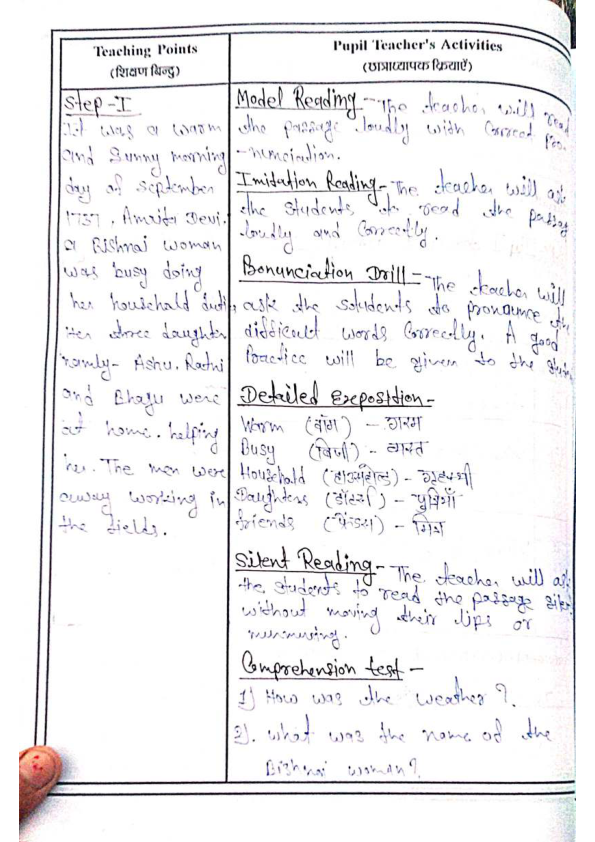 Teaching Points
(शिक्षण बिन्दु)
Step-I
It was a warm
and Sunny morning
day of September
1737, Amrita Devi.
a Bishnai woman
was busy doing
her household duti
Her three daughter
namely- Ashu. Ratni
and Bhagu were
at home. helping
her. The men were
away working in
the fields.
Pupil Teacher's Activities
(छात्राध्यापक क्रियाएँ)
Model Reading - The teacher will read
the passage loudly with Correct Pro-
-nunciation.
Imitation Reading - The teacher will as
the Students to read the passag
loudly and Correctly.
Bonunciation Drill - The teacher will
ask the students to pronounce th
difficult words Correctly. A good
Practice will be given to the
Detailed Exposition -
Warm (वॉर्म) - गरम
Busy (बिजी) - व्यस्त
Household (हाऊसहोल्ड) - गृहस्थी
Daughters (डॉटर्स) - पुत्रियाँ
friends (फ्रेंड्स) - मित्र
Silent Reading - The teacher will as
the students to read the passage
without moving their lips or
murmuring.
Comprehension test -
1) How was the weather?
2). what was the name of the
Bishnai woman?